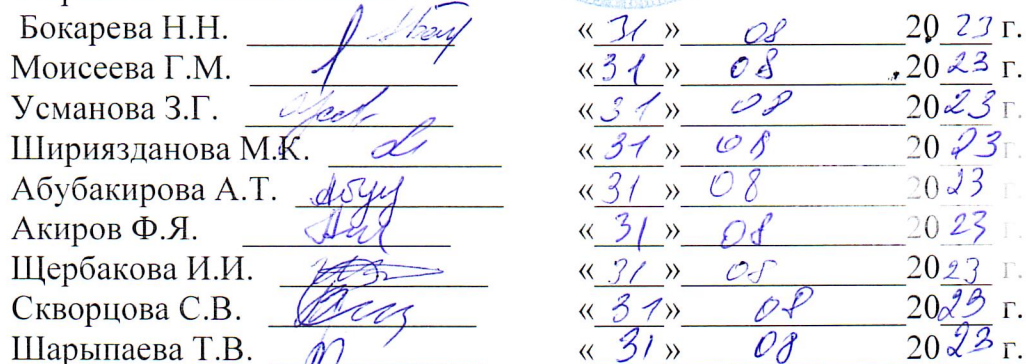 Бокарева Н.Н. «31» 08 2023 г.
Моисеева Г.М. «31» 08 2023 г.
Усманова З.Г. «31» 08 2023 г.
Шириязданова М.К. «31» 08 2023 г.
Абубакирова А.Т. «31» 08 2023
Акиров Ф.Я. «31» 08 2023 г.
Щербакова И.И. «31» 08 2023 г.
Скворцова С.В. «31» 08 2023 г.
Шарыпаева Т.В. «31» 08 2023 г.